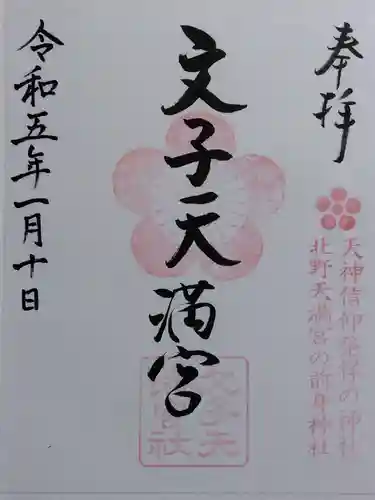 奉拝
天神信仰発祥の神社
北野天満宮の前身神社
文子天満宮
令和五年一月十日